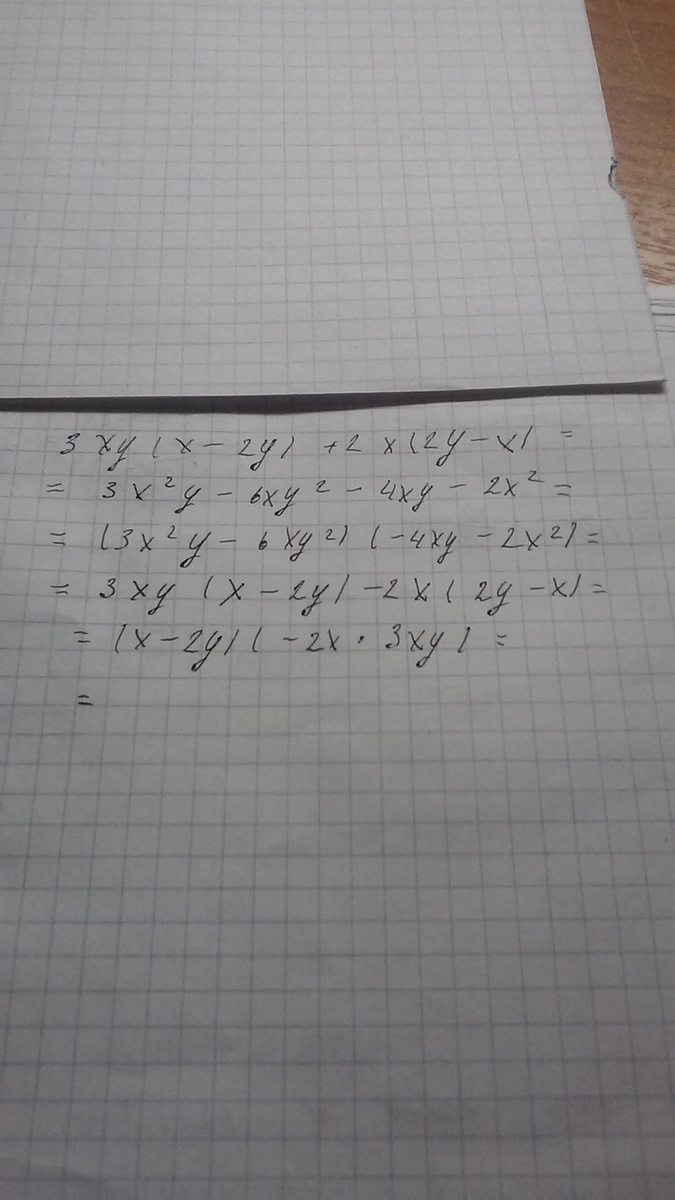 3xy(x-2y)+2x(2y-x)=
=3x²y-6xy²-4xy-2x²=
=(3x²y-6xy²)(-4xy-2x²)=
=3xy(x-2y)-2x(2y-x)=
=(x-2y)(-2x·3xy)=
=